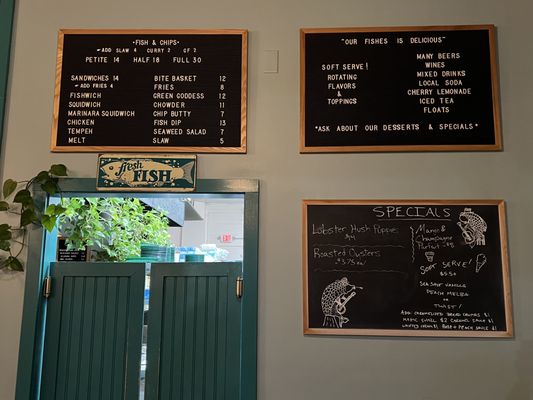 FISH & CHIPS
ADD SLAW 4 CURRY 2 GF 2
PETITE 14 HALF 18 FULL 30
SANDWICHES 14
ADD FRIES 4
FISHWICH
SQUIDWICH
MARINARA SQUIDWICH
CHICKEN
TEMPEH
MELT
BITE BASKET 12
FRIES 8
GREEN GODDESS 12
CHOWDER 11
CHIP BUTTY 7
FISH DIP 13
SEAWEED SALAD 7
SLAW 5
"OUR FISHES IS DELICIOUS"
SOFT SERVE!
ROTATING
FLAVORS
&
TOPPINGS
MANY BEERS
WINES
MIXED DRINKS
LOCAL SODA
CHERRY LEMONADE
ICED TEA
FLOATS
*ASK ABOUT OUR DESSERTS & SPECIALS*
fresh
FISH
SPECIALS
Lobster Hush Puppies
$14
Roasted Oysters
$3.75 ea
Mango &
Champagne
Parfait
SOFT SERVE!
SEA SALT VANILLA
PEACH MELBA
or
TWIST!
ADD
MAGIC SHELL $2 CARAMEL SAUCE $1
PEACH SAUCE $1